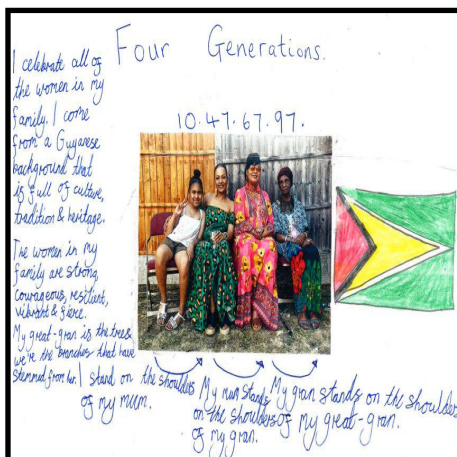 Four Generations.
10.47.67.97.
I celebrate all of
the women in my
family. I come
from a Guyanese
background that
is full of culture,
tradition & heritage.
The women in my
family are strong
courageous, resilient,
vibrant & fierce.
My great-gran is the tree &
we're the branches that have
stemmed from her.
I stand on the shoulders
of my mum.
My mum stands
on the shoulders
of my gran.
My gran stands on the shoulders
of my great-gran.